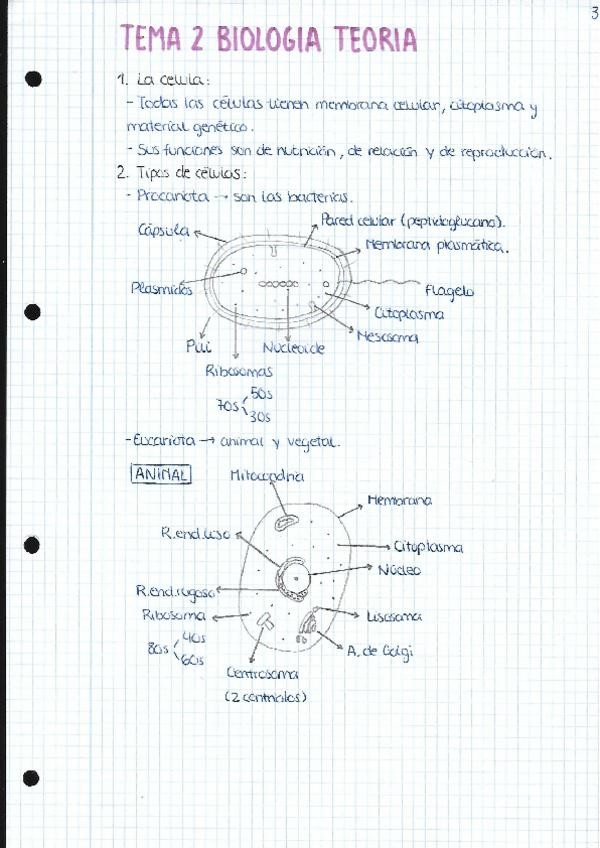 3
TEMA 2 BIOLOGIA TEORIA
1. La celula:
- Todas las células tienen membrana celular, citoplasma y
material genético.
- Sus funciones son de nutrición, de relación y de reproducción.
2. Tipos de células:
- Procariota → son las bacterias.
Cápsula
Pared celular (peptidoglucano).
Membrana plasmática.
Plasmidos
flagelo
Citoplasma
Mesosoma
Pili
Nucleoide
Ribosomas
70s
50s
30s
- Eucariota → animal y vegetal.
ANIMAL
Mitocondria
Membrana
R.end.liso
Citoplasma
Núcleo
R.end.rugoso
Ribosoma
Lisosoma
80s
40s
60s
A. de Golgi
Centrosoma
(2 centriolos)